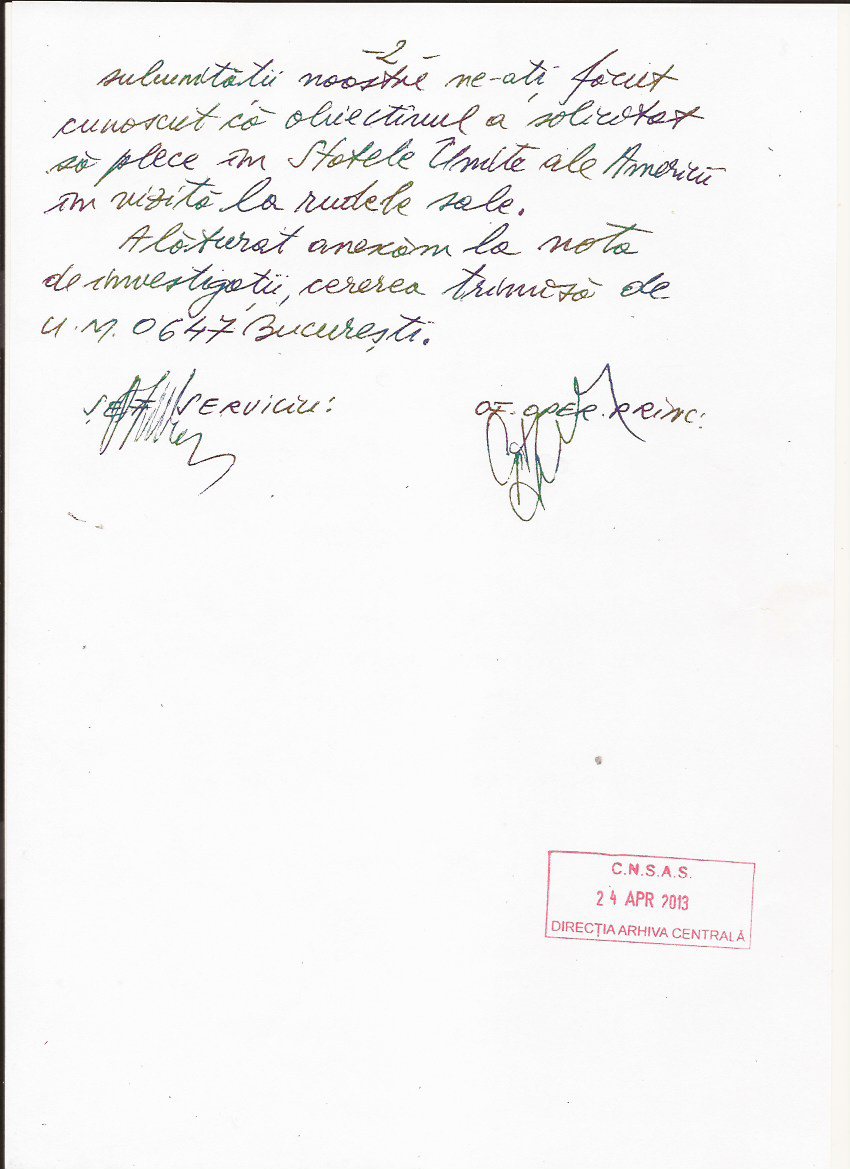 -2
subunității noastre ne-ați făcut
cunoscut că obiectivul a solicitat
să plece în Statele Unite ale Americii
în vizită la rudele sale.
Alăturat anexăm la nota
de investigații, cererea trimisă de
U.M. 0647, București.
ȘEF SERVICIU: OF. OPER. PRINC:
C.N.S.A.S.
24 APR 2013
DIRECȚIA ARHIVA CENTRALĂ